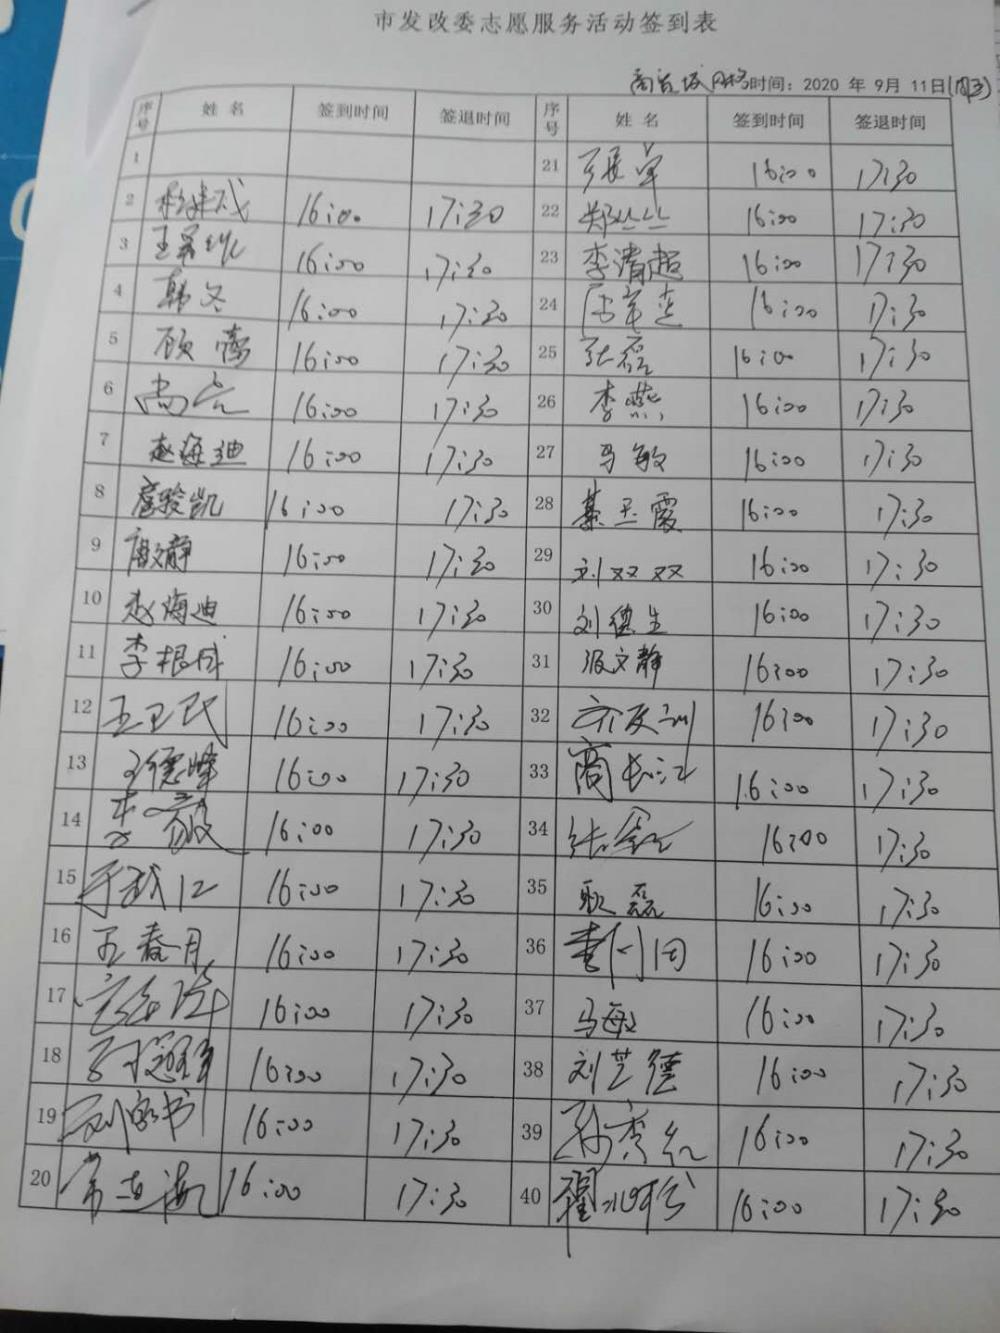 市发改委志愿服务活动签到表
时间：2020 年 9月 11日
序号 姓 名 签到时间 签退时间 序号 姓 名 签到时间 签退时间
1 21 16:00 17:30
2 16:00 17:30 22 郑丝丝 16:00 17:30
3 16:00 17:30 23 李清超 16:00 17:30
4 韩冬 16:00 17:30 24 16:00 17:30
5 顾 16:00 17:30 25 张磊 16:00 17:30
6 尚 16:00 17:30 26 李燕 16:00 17:30
7 赵海迪 16:00 17:30 27 马敏 16:00 17:30
8 凯 16:00 17:30 28 綦玉霞 16:00 17:30
9 静 16:00 17:30 29 刘双双 16:00 17:30
10 赵海迪 16:00 17:30 30 刘德生 16:00 17:30
11 李根成 16:00 17:30 31 文静 16:00 17:30
12 王卫民 16:00 17:30 32 16:00 17:30
13 王德峰 16:00 17:30 33 商长江 16:00 17:30
14 李 16:00 17:30 34 张 16:00 17:30
15 16:00 17:30 35 耿磊 16:00 17:30
16 王春月 16:00 17:30 36 16:00 17:30
17 16:00 17:30 37 马敏 16:00 17:30
18 16:00 17:30 38 刘芝德 16:00 17:30
19 刘 书 16:00 17:30 39 孙秀红 16:00 17:30
20 常 海 16:00 17:30 40 翟 16:00 17:30